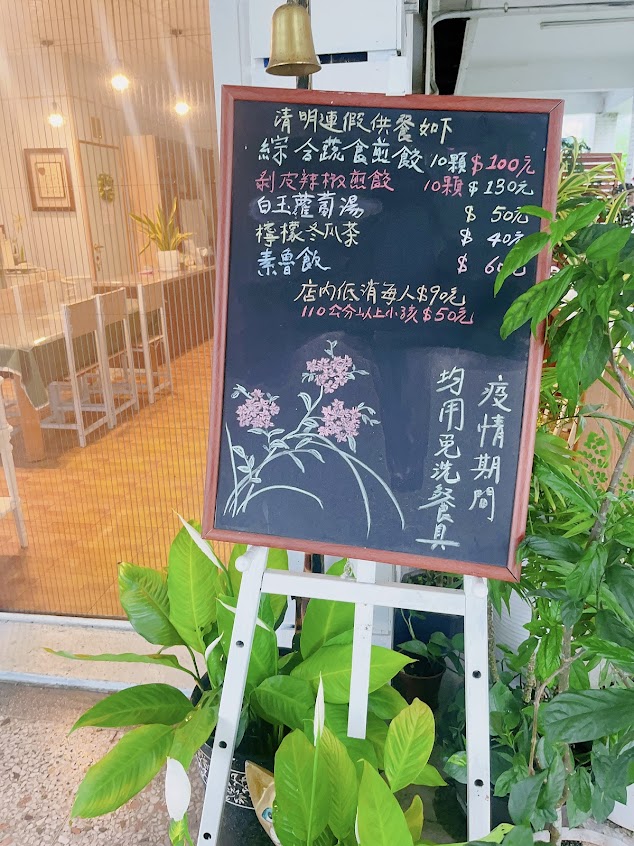 清明連假供餐如下
綜合蔬食煎餃 10顆 $100元
剥皮辣椒煎餃 10顆 $130元
白玉蘿蔔湯 $50元
檸檬冬瓜茶 $40元
素魯飯 $60元
店內低消每人$90元
110公分以上小孩$50元
疫情期間
均用免洗餐具